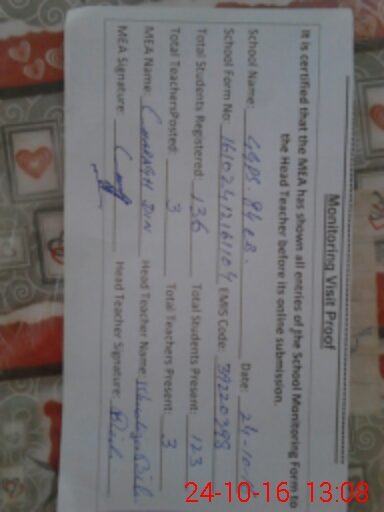 Monitoring Visit Proof
It is certified that the MEA has shown all entries of the School Monitoring Form to
the Head Teacher before its online submission.
School Name: GGPS. 84 Date: 24-10-
School Form No: EMIS Code: 39220298
Total Students Registered: 136 Total Students Present: 123
Total TeachersPosted: 3 Total Teachers Present: 3
MEA Name: DIN Head Teacher Name:
MEA Signature: Head Teacher Signature:
24-10-16 13:08